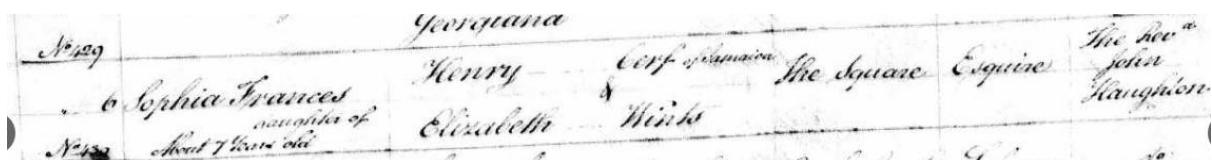 Georgiana
No 429
" 6 Sophia Frances daughter of About 7 Years old
Henry & Elizabeth
Cerf of Jamaica Wints
The Square
Esquire
The Revd John Haughton
No 430